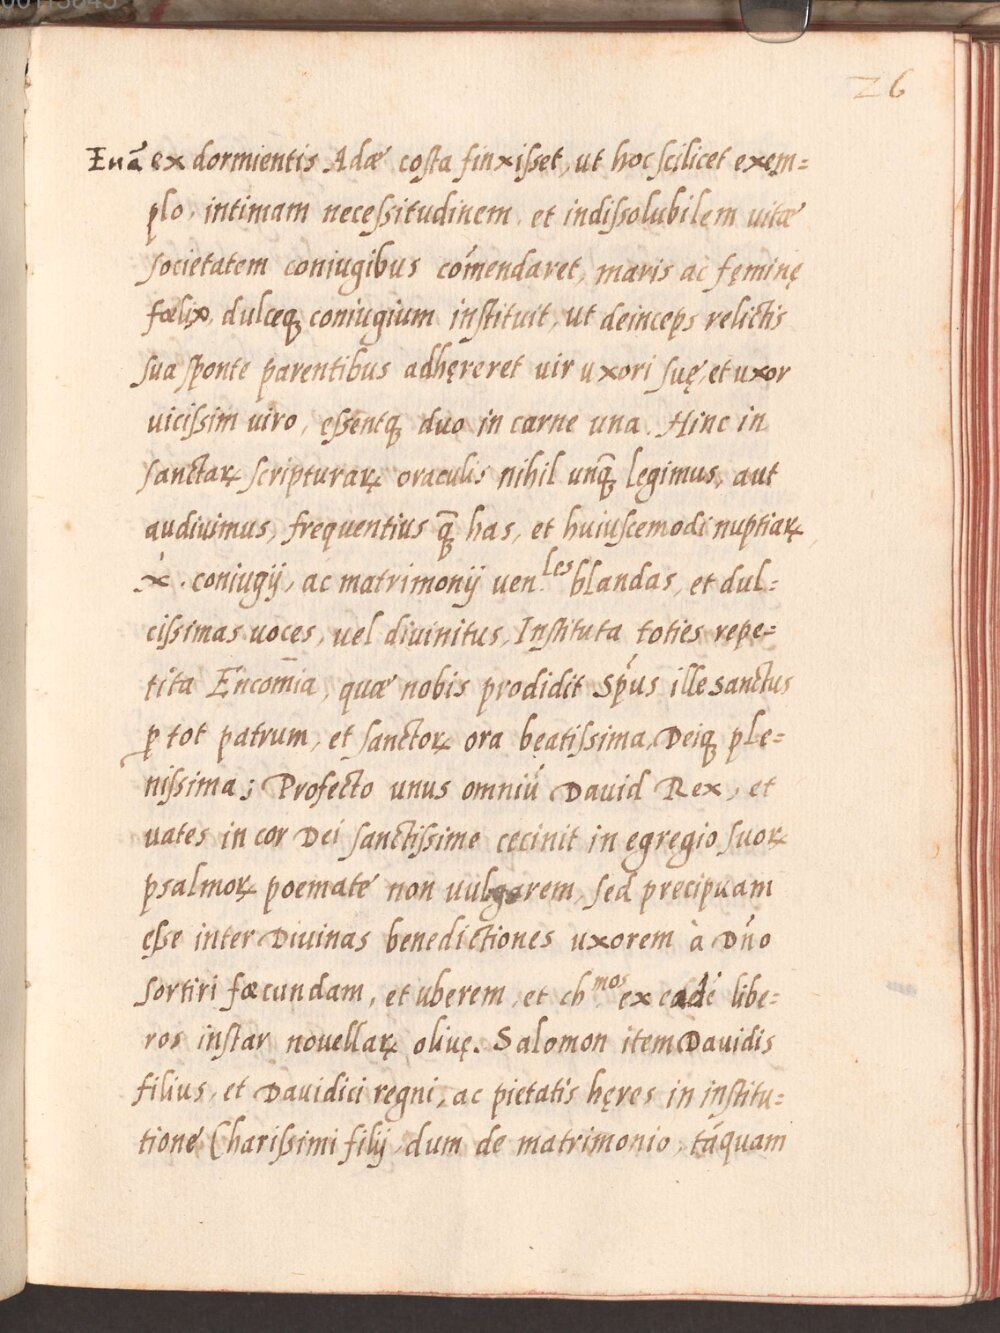 26
Euā ex dormientis Adæ costa finxisset, ut hoc scilicet exem=
plo, intimam necessitudinem, et indissolubilem uitæ
societatem coniugibus cōmendaret, maris ac fęminę
fœlix, dulceqꝫ coniugium instituit, ut deinceps relictis
sua sponte parentibus adhęreret uir uxori suę, et uxor
uicissim uiro, essentqꝫ duo in carne una. Hinc in
sanctaꝝ scripturaꝝ oraculis nihil unq̄ꝫ legimus, aut
audiuimus, frequentius q̄ꝫ has, et huiuscemodi nuptiaꝝ,
coniugij, ac matrimonij uen.les blandas, et dul=
cissimas uoces, uel diuinitus, Instituta toties repe=
tita Encomīa, quæ nobis prodidit Sp̄us ille sanctus
ꝑ tot patrum, et sanctoꝝ ora bęatissima, Deiqꝫ ple=
nissima; Profecto unus omniū Dauid Rex, et
uates in cor Dei sanctissime cecinit in egregio suoꝝ
psalmoꝝ poemate non uulgarem, sed precipuam
esse inter Diuinas benedictiones uxorem à Dn̄o
sortiri fœcundam, et uberem, et ch.mos ex eadē libe=
ros instar nouellaꝝ oliuę. Salomon item Dauidis
filius, et Dauidici regni, ac pietatis hęres in institu=
tione Charissimi filij, dum de matrimonio, tāquam